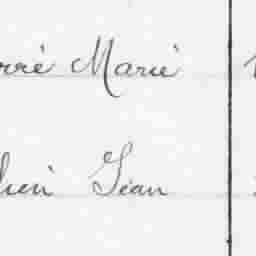 rré Marie
lien Jean